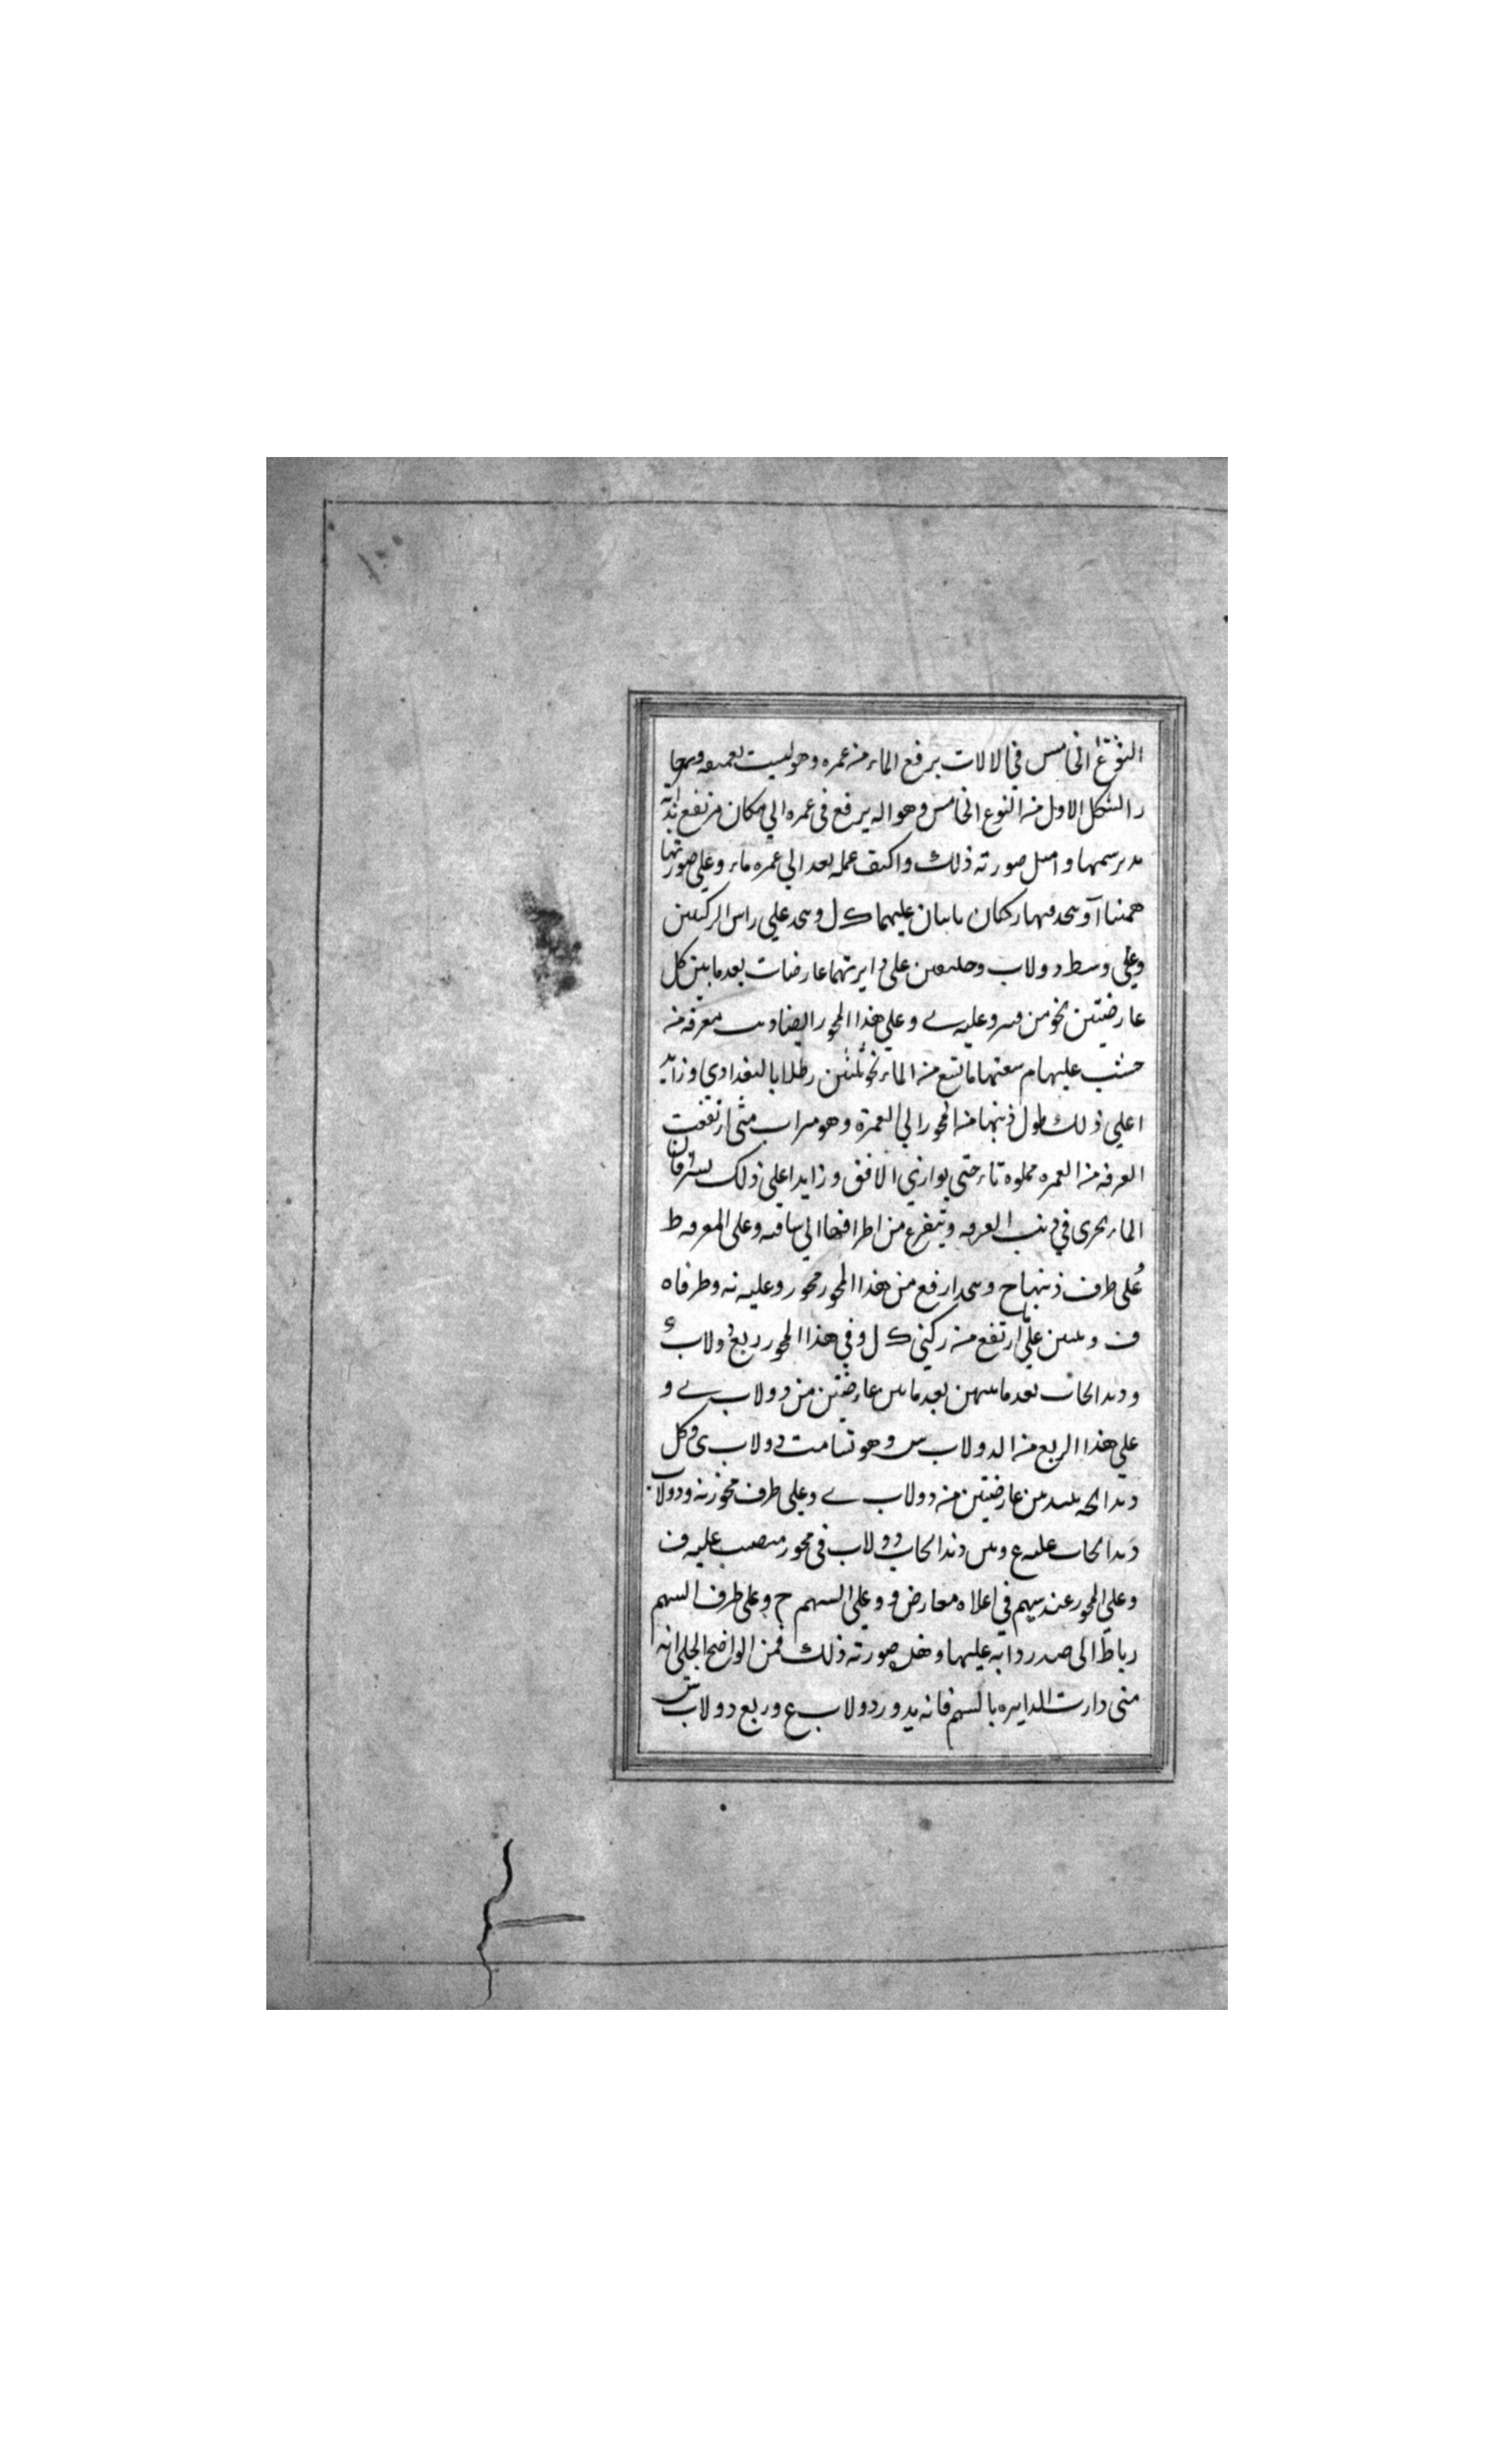 النوع الخامس في الالات يرفع الماء من غمره وهو ليست بعميقه
الشكل الاول من النوع الخامس وهو اله يرفع في غمره الي مكان مرتفع بدابه
رسمها وامثل صورته ذلك واكيف عمله بعد الي غمره ماء وعلي صورتها
آ ويتخد فيها ركنان ثابتان عليهما ك ل ويتخد علي راس الركنين
وعلي وسط دولاب وحلقتين علي دايرتهما عارضات بعد ما بين كل
عارضتين نحو من وعليه ي وعلي هذا المحور ايضا معرفه من
خشب عليها م سعتها ما تسع من الماء نحو ثلثين رطلا بالبغدادي وزايد
اعلي ذلك طول ذنبها من المحور الي الغمرة وهو ميزاب متي ارتفعت
الغرفه من الغمره مملوة ماء حتي يوازي الافق وزايدا علي ذلك فان
الماء يجري في ذنب الغرفه ويتفرغ من اطرافها الي ساقيه وعلي المعرفه ط
علي طرف ذنبها ح ويتخد ارفع من هذا المحور محور وعليه نه وطرفاه
ف علي ما ارتفع من ركني ك ل وفي هذا المحور ربع دولاب
ودندانجات بعد ما بينهن بعد ما بين عارضتين من دولاب ي و
علي هذا الربع من الدولاب س وهو تسامت دولاب ي وكل
دندانجه بين عارضتين من دولاب ي وعلي طرف محور نه ودولاب
دندانجات عليه ع وبين دندانجات دولاب في محور منتصب عليه ف
وعلي المحور عند سهم في اعلاه معارض و وعلي السهم ح وعلي طرف السهم
رباط الي صدر دابه عليها وهذه صورته ذلك فمن الواضح الجلي انه
متي دارت الدايره بالسهم فانه يدور دولاب ع وربع دولاب س